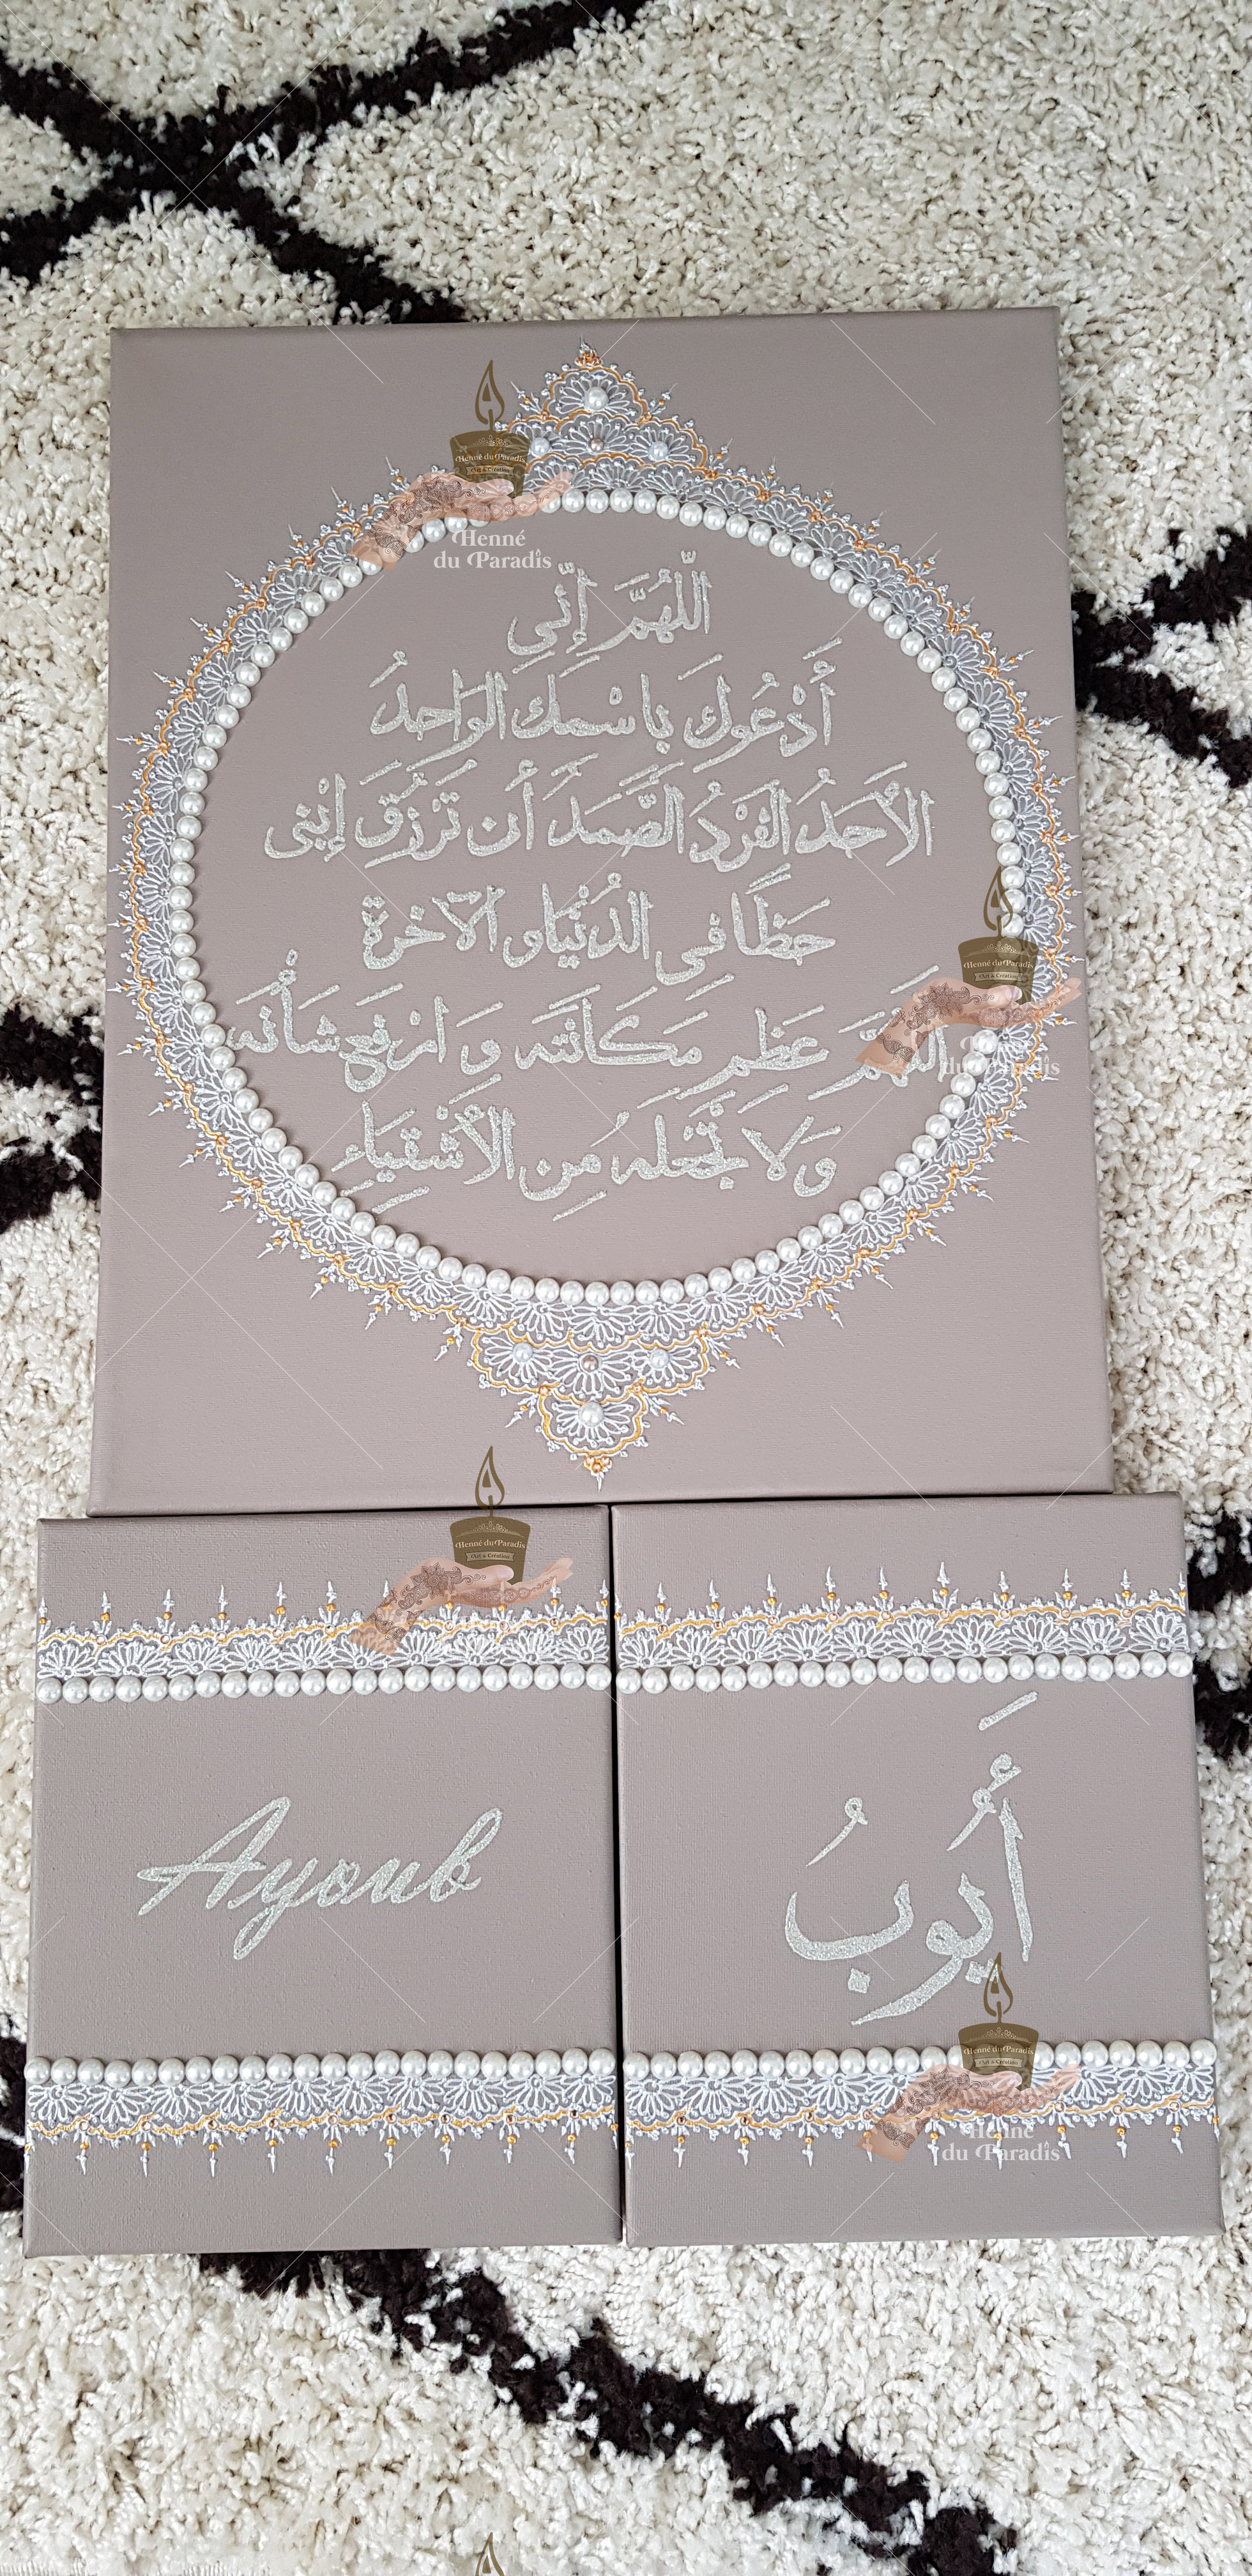 Henné du Paradis
Art & Création
Henné
du Paradis
اللَّهُمَّ إِنِّي
أَدْعُوكَ بِاسْمِكَ الوَاحِدُ
الأَحَدُ الفَرْدُ الصَّمَدَ أَن تَرْزُقَ إِبْنِى
حَظًّا فِى الدُنْيَا و الآخرة
اللهُمَّ عَظِم مَكَانَته وَ ارفع شَأنُه
وَلا تَجْعَلهُ مِن الأَشْقِيَاءِ
Henné du Paradis
Art & Création
du Paradis
Henné du Paradis
Art & Création
Ayoub
أَيُوبُ
Henné du Paradis
Art & Création
Henné
du Paradis